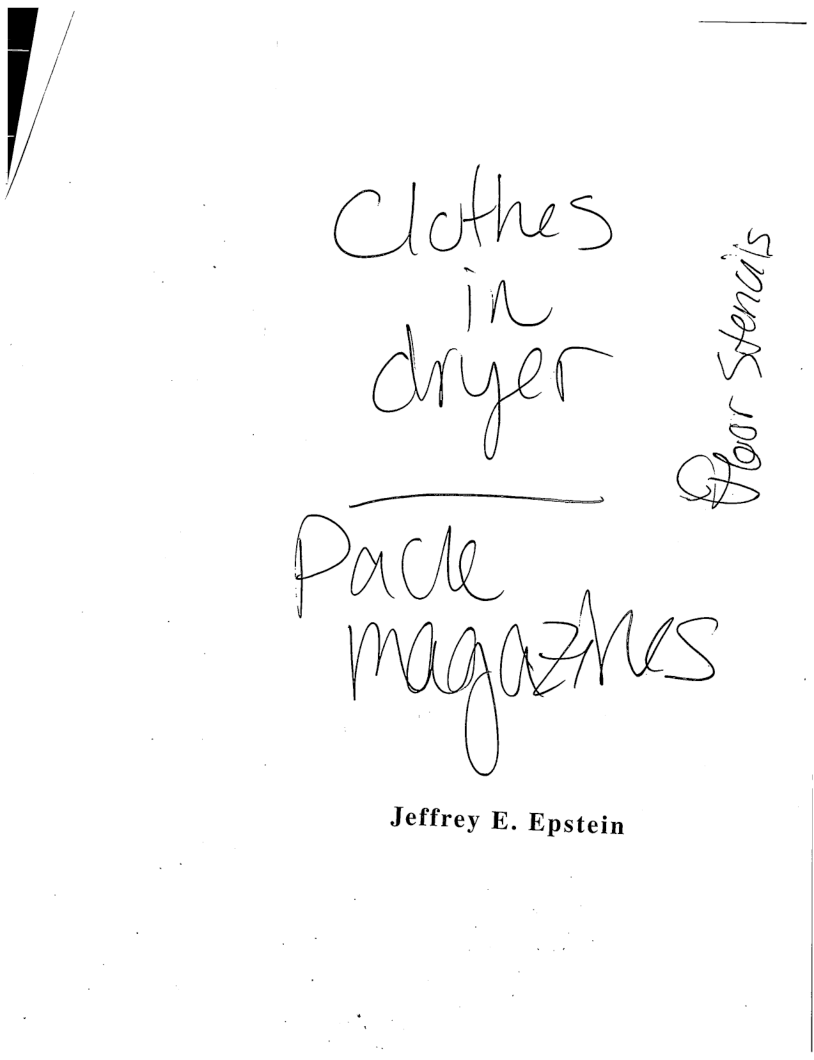 Clothes
in
dryer
Pack
magazines
floor Stencils
Jeffrey E. Epstein